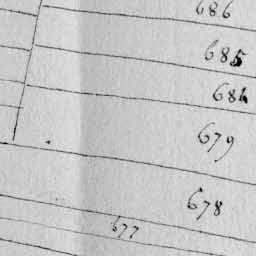 686
685
684
679
678
677